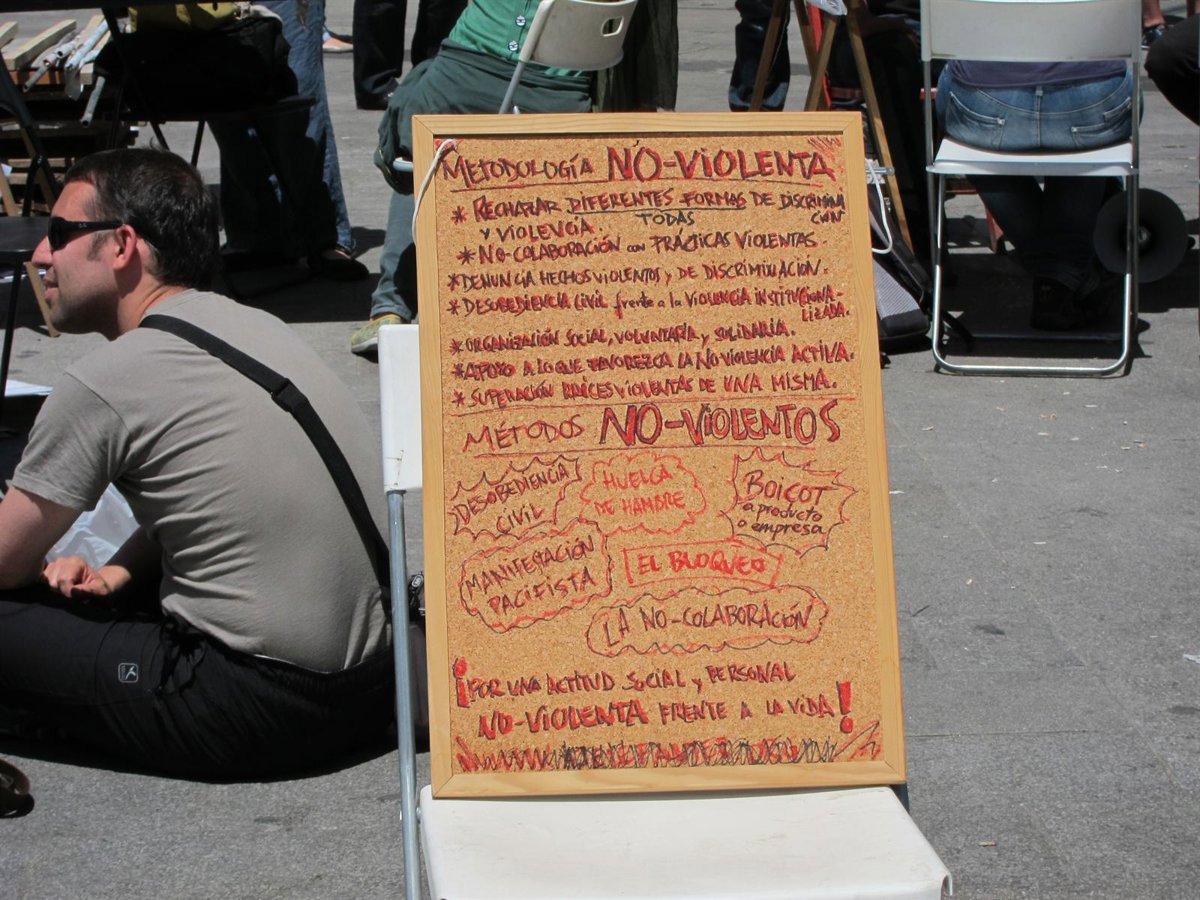 METODOLOGÍA NO-VIOLENTA
* RECHAZAR DIFERENTES FORMAS DE DISCRIMINA
CIÓN
Y VIOLENCIA. TODAS
* NO-COLABORACIÓN con PRÁCTICAS VIOLENTAS.
* DENUNCIA HECHOS VIOLENTOS y DE DISCRIMINACIÓN.
* DESOBEDIENCIA CIVIL frente a la VIOLENCIA INSTITUCIONA
LIZADA.
* ORGANIZACIÓN SOCIAL, VOLUNTARIA, y SOLIDARIA.
* APOYO A LO QUE FAVOREZCA LA NO VIOLENCIA ACTIVA.
* SUPERACIÓN RAICES VIOLENTAS DE UNA MISMA.
MÉTODOS NO-VIOLENTOS
DESOBEDIENCIA
CIVIL
HUELGA
DE HAMBRE
BOICOT
a producto
o empresa
MANIFESTACIÓN
PACIFISTA
EL BLOQUEO
LA NO-COLABORACIÓN
¡POR UNA ACTITUD SOCIAL y PERSONAL
NO-VIOLENTA FRENTE A LA VIDA!